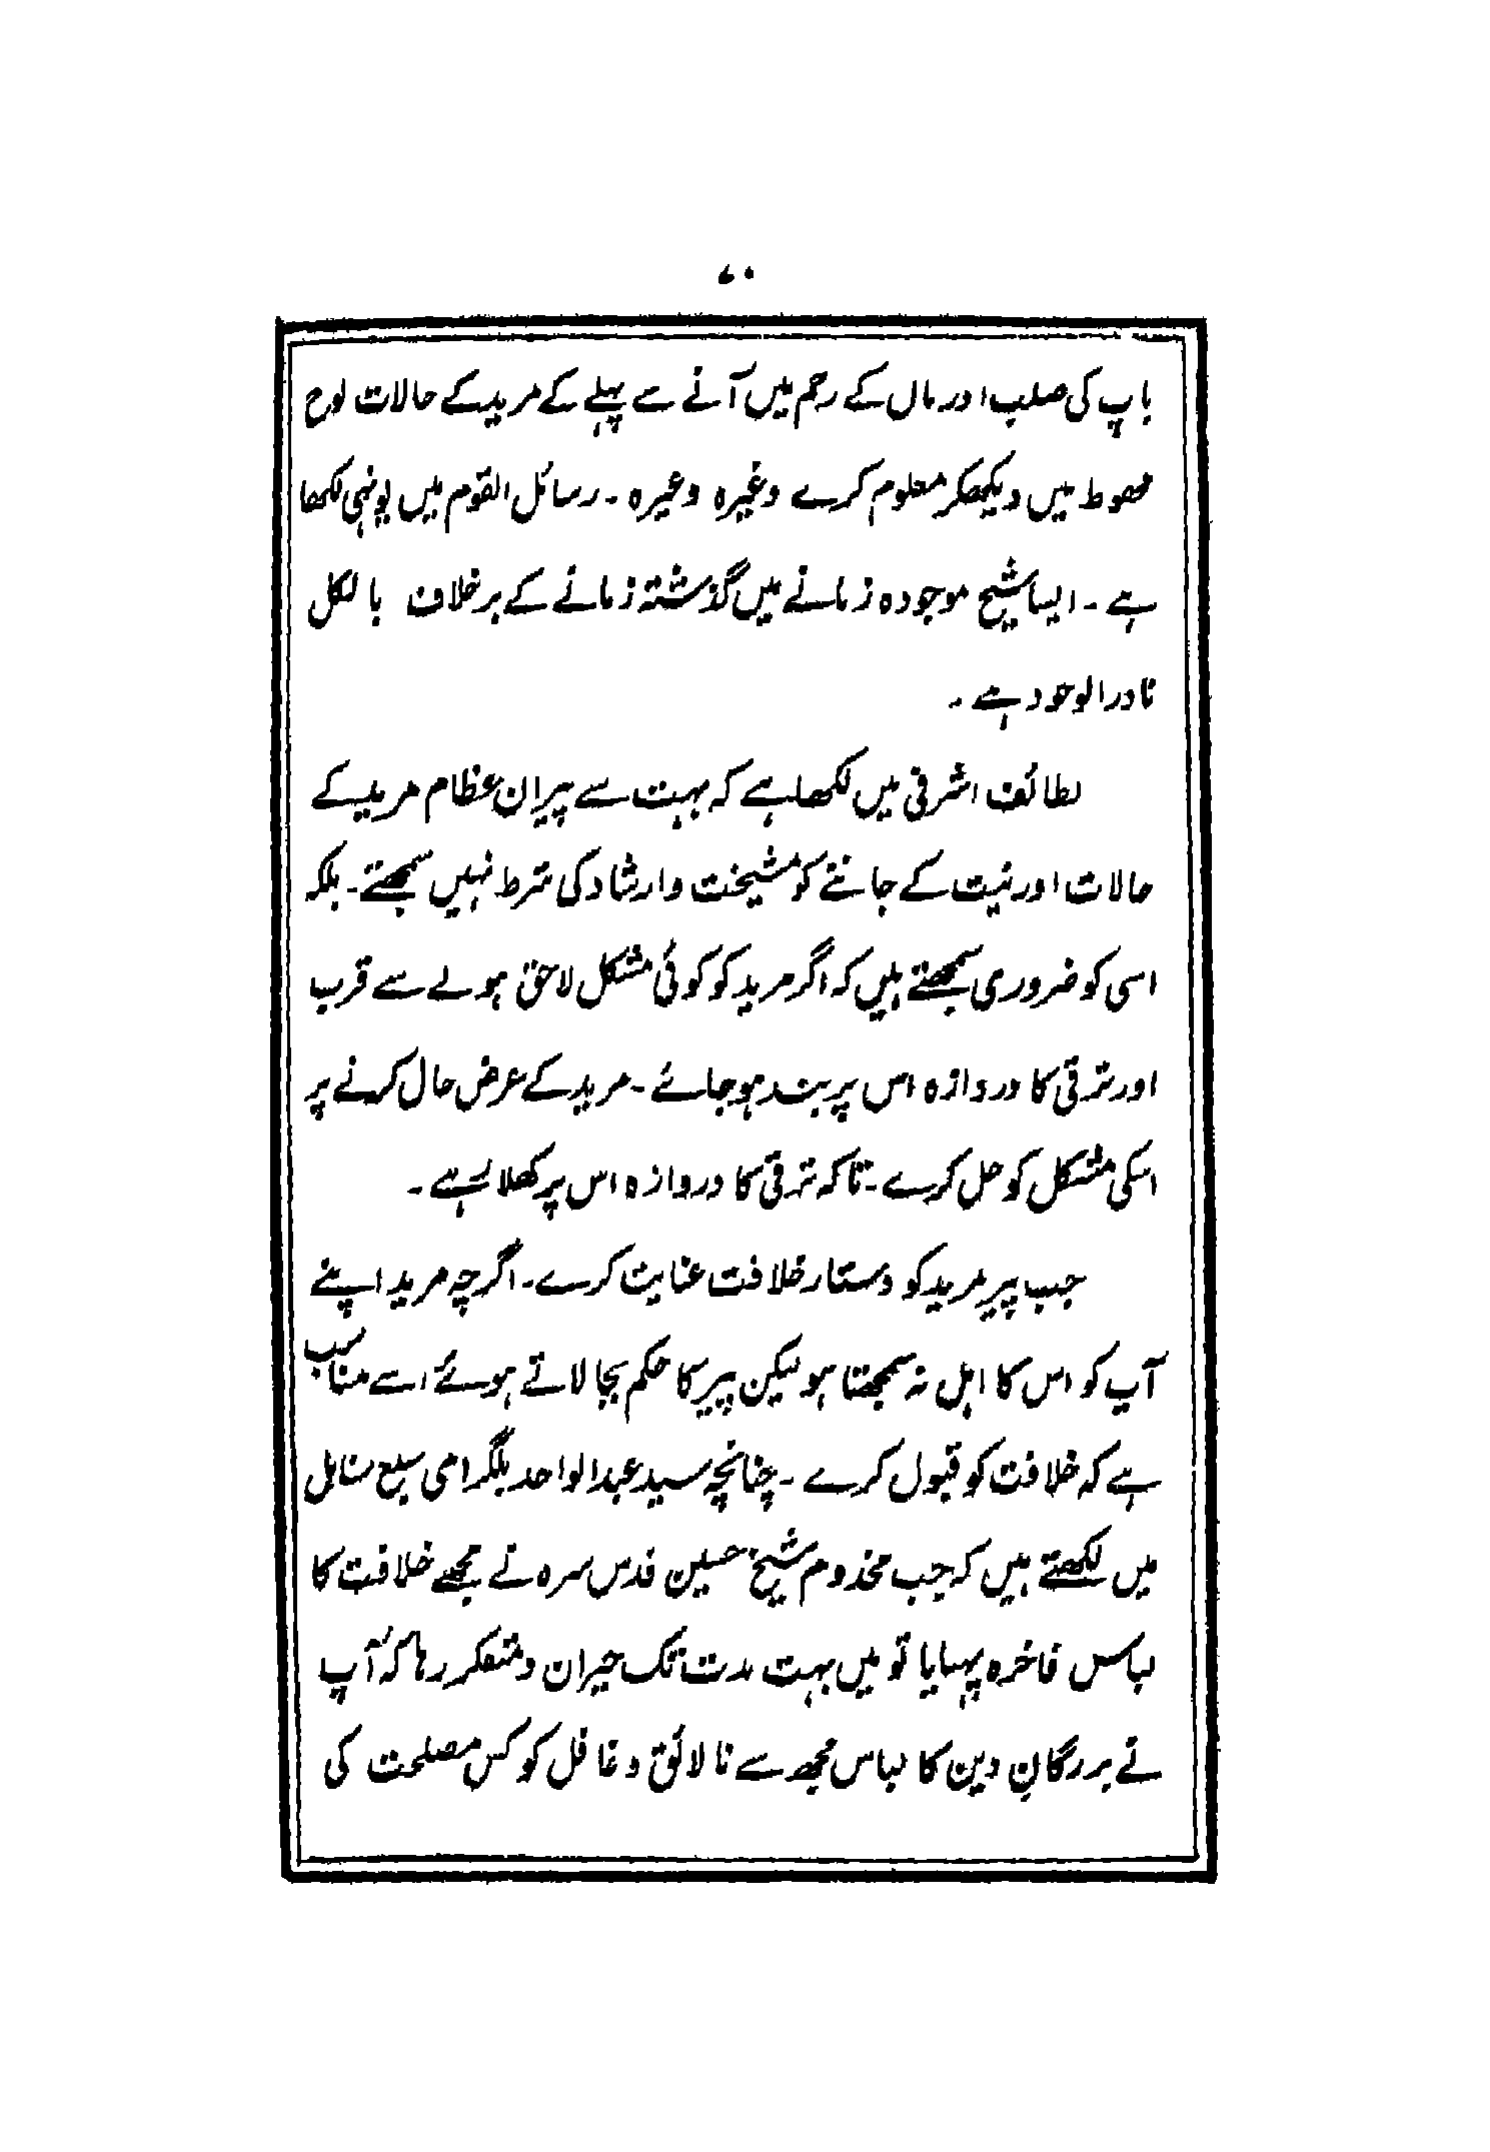 ۷۰
باپ کی صلب اور ماں کے رحم میں آنے سے پہلے کے مرید کے حالات لوح
محفوظ میں دیکھکر معلوم کرے وغیرہ وغیرہ ۔ رسائل القوم میں یونہی لکھا
ہے ۔ ایسا شیخ موجودہ زمانے میں گذشتہ زمانے کے برخلاف بالکل
نادر الوجود ہے ۔
لطائف اشرفی میں لکھا ہے کہ بہت سے پیران عظام مرید کے
حالات اور نیت کے جاننے کو مشیخت وارشاد کی شرط نہیں سمجھتے ۔ بلکہ
اسی کو ضروری سمجھتے ہیں کہ اگر مرید کو کوئی مشکل لاحق ہونے سے قرب
اور ترقی کا دروازہ اس پر بند ہو جائے ۔ مرید کے عرض حال کرنے پر
اسکی مشکل کو حل کرے ۔ تاکہ ترقی کا دروازہ اس پر کھلا رہے ۔
جب پیر مرید کو دستار خلافت عنایت کرے ۔ اگرچہ مرید اپنے
آپ کو اس کا اہل نہ سمجھتا ہو لیکن پیر کا حکم بجا لاتے ہوئے اسے مناسب
ہے کہ خلافت کو قبول کرے ۔ چنانچہ سید عبدالواحد بلگرامی سبع سنابل
میں لکھتے ہیں کہ جب مخدوم شیخ حسین قدس سرہ نے مجھے خلافت کا
لباس فاخرہ پہنایا تو میں بہت مدت تک حیران و متفکر رہا کہ آپ
نے بزرگانِ دین کا لباس مجھ سے نالائق و غافل کو کس مصلحت کی